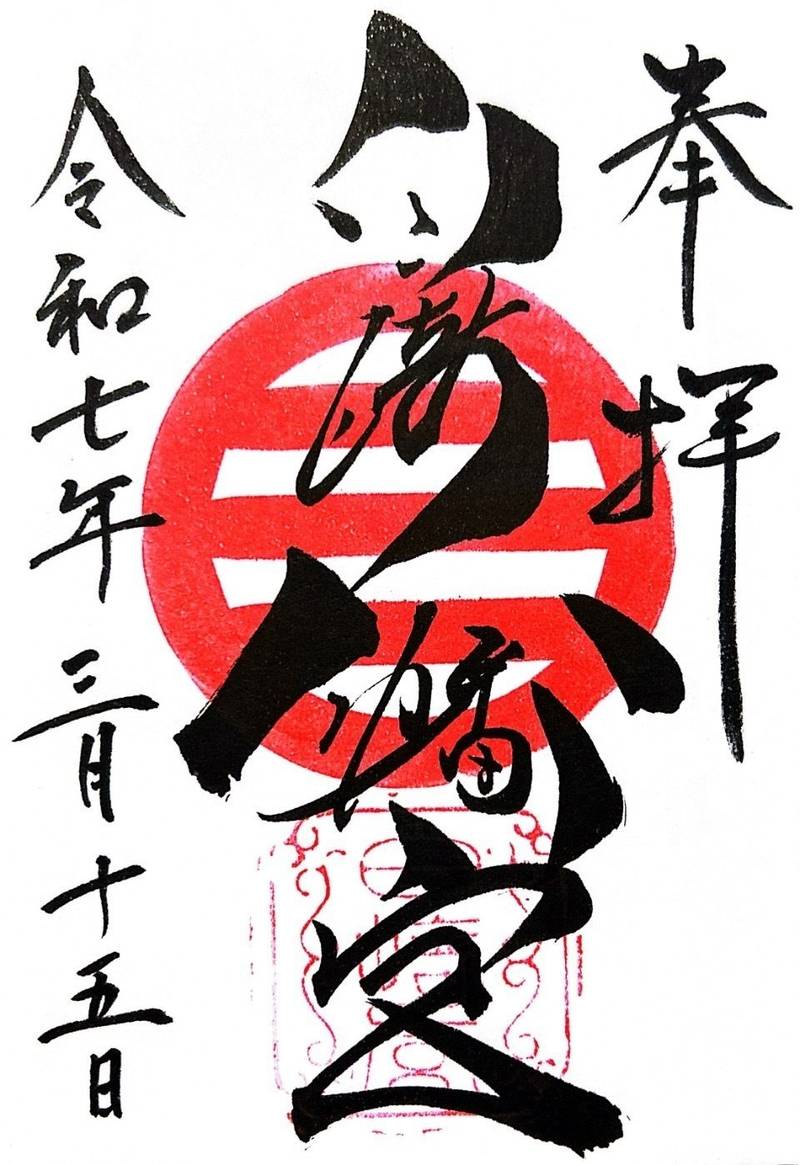 奉拝
八幡宮
令和七年三月十五日